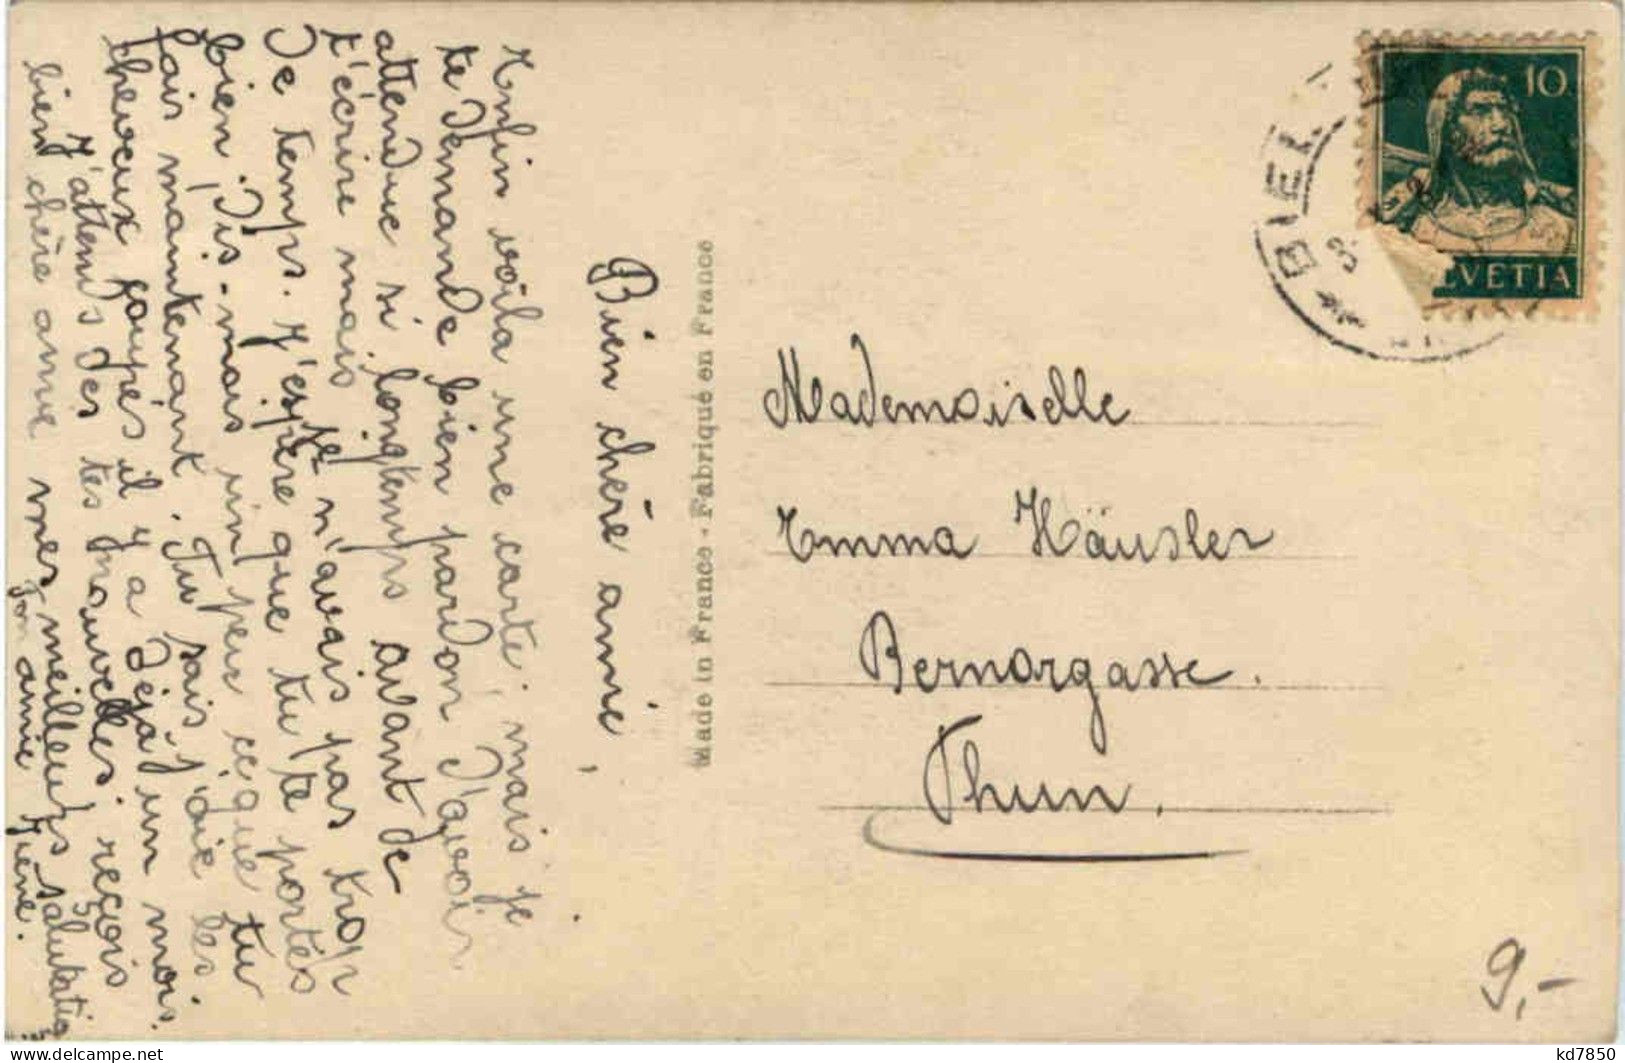 Bien chère amie,
Enfin voila une carte, mais je
te demande bien pardon d'avoir
attendue si longtemps avant de
t'écrire mais je n'avais pas trop
de temps. J'espère que tu te portes
bien. Dis-mois un peu ce que tu
fais maintenant. Tu sais j'aie les
cheveux coupés il y a déjà un mois.
J'attends des tes nouvelles. reçois
bien chère amie mes meilleurs salutations
Ton amie
Made in France - Fabriqué en France
BIEL
10
HELVETIA
Mademoiselle
Emma Häusler
Bernargasse.
Thun.
9,-
kd7850